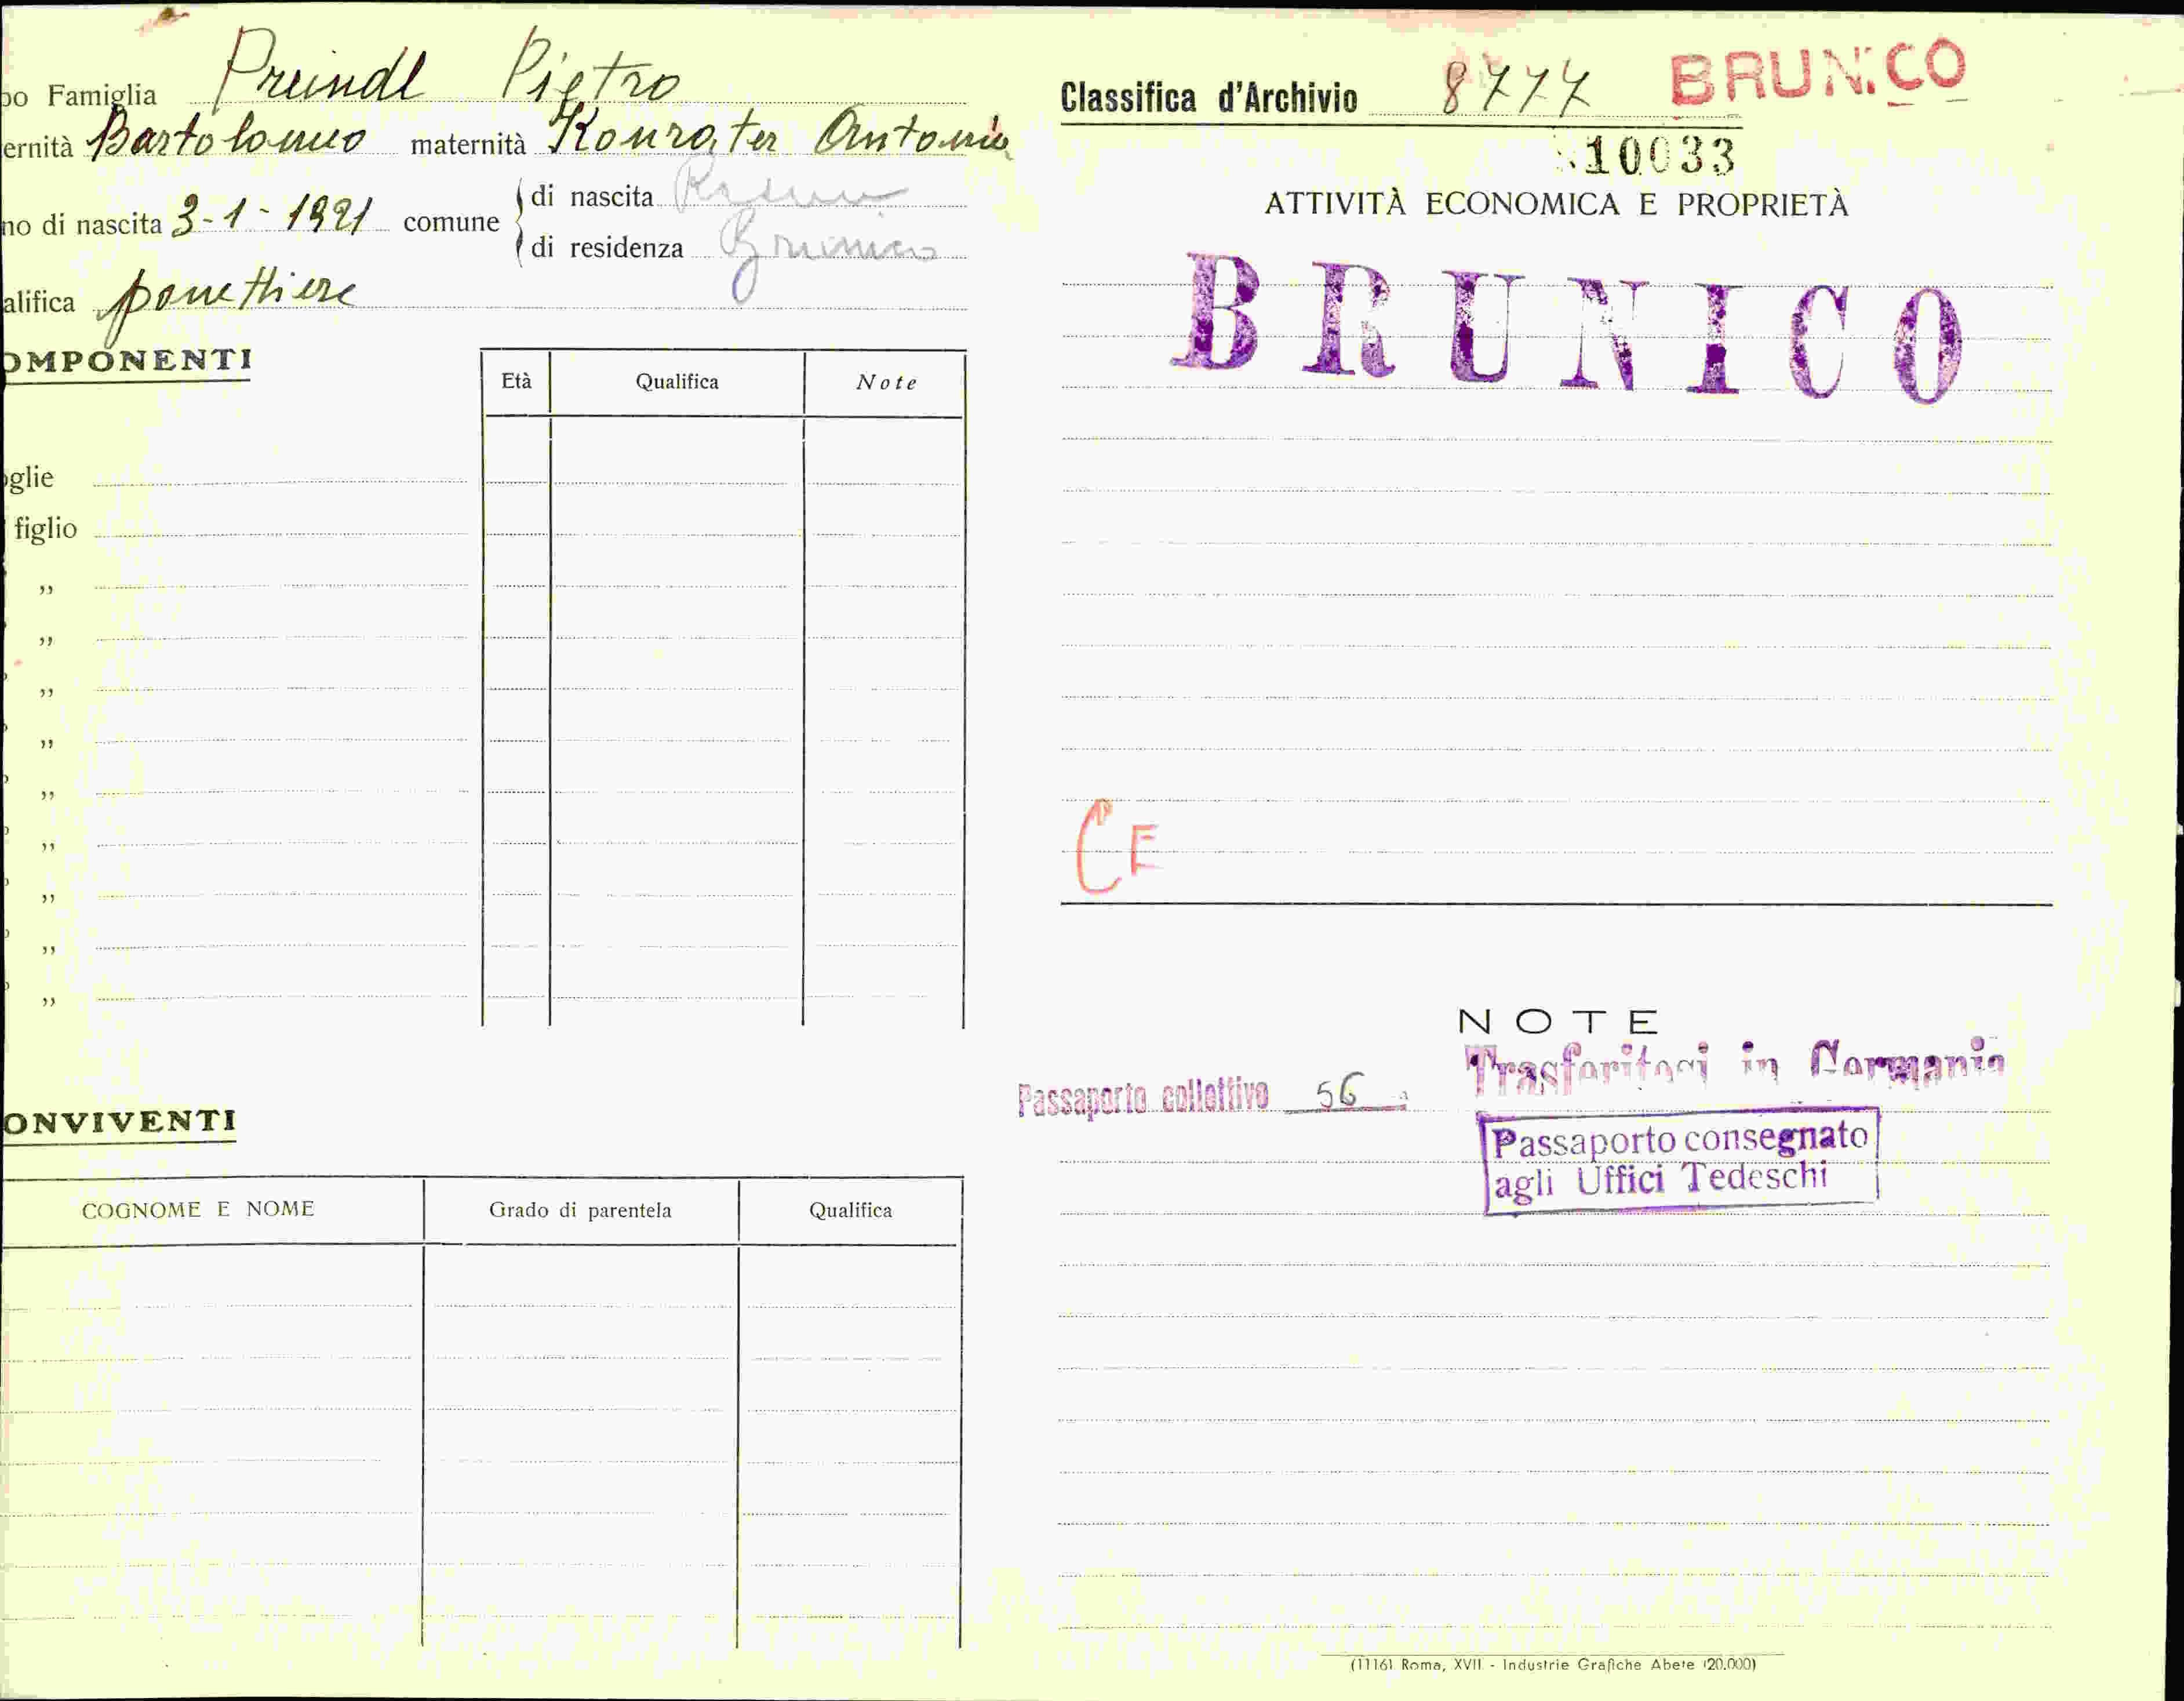 po Famiglia Preindl Pietro
ernità Bartolomeo maternità Konrater Antonia
no di nascita 3-1-1921 comune
di nascita Rasun
di residenza Brunico
alifica panettiere
OMPONENTI
Età Qualifica Note
oglie
figlio
„
„
„
„
„
„
„
„
„
ONVIVENTI
COGNOME E NOME Grado di parentela Qualifica
Classifica d'Archivio 8777 BRUNICO
10033
ATTIVITÀ ECONOMICA E PROPRIETÀ
BRUNICO
CF
NOTE
Trasferitosi in Germania
Passaporto collettivo 56
Passaporto consegnato
agli Uffici Tedeschi
(1116) Roma, XVII - Industrie Grafiche Abete (20.000)